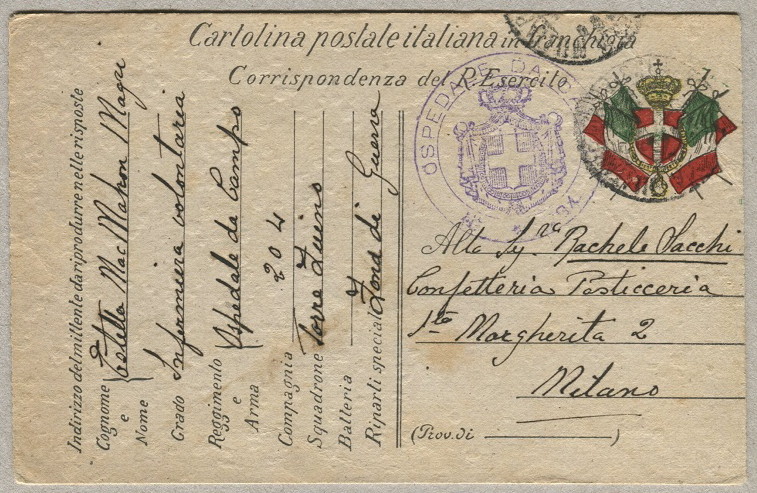 Cartolina postale italiana in franchigia
Corrispondenza del R. Esercito
OSPEDALE DA
Indirizzo del mittente da riprodurre nelle risposte
Cognome e Nome Estella Mac Mahon Magri
Grado Infermiera volontaria
Reggimento e Arma Ospedale da Campo
Compagnia 204
Squadrone Torre Zuino
Batteria
Riparli speciali Zona di Guerra
Alla Sig.ra Rachele Sacchi
Confetteria Pasticceria
S.ta Margherita 2
Milano
(Prov. di)